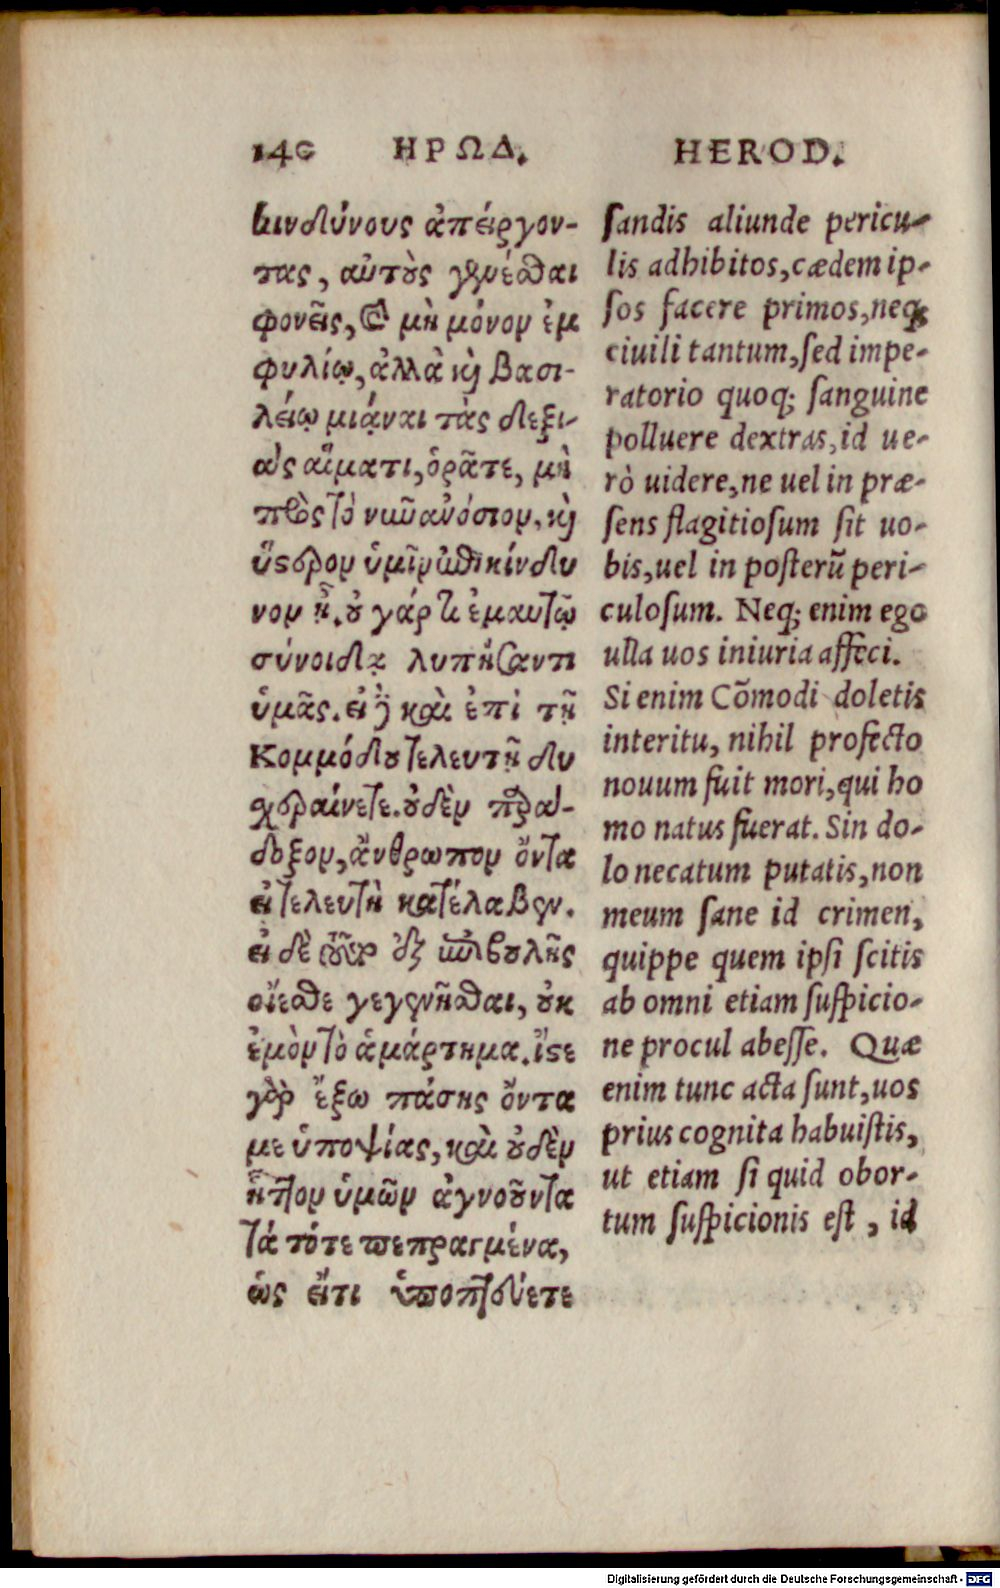 140 ΗΡΩΔ. HEROD.
κινδύνους ἀπείργον-
τας, αὐτοὺς γενέσθαι
φονεῖς, καὶ μὴ μόνον ἐμ
φυλίῳ, ἀλλὰ καὶ βασι-
λείῳ μιᾶναι τὰς δεξι-
ὰς αἵματι, ὁρᾶτε, μὴ
πρὸς τὸ νῦν ἀνόσιον, καὶ
ὕστερον ὑμῖν ἐπικίνδυ
νον ᾖ. οὐ γάρ τι ἐμαυτῷ
σύνοιδα λυπήσαντι
ὑμᾶς. εἰ δὲ καὶ ἐπὶ τῇ
Κομμόδου τελευτῇ δυ
σχεραίνετε. οὐδὲν παρά-
δοξον, ἄνθρωπον ὄντα
εἰ τελευτὴ κατέλαβεν.
εἰ δὲ οὖν ἐξ ἐπιβουλῆς
οἴεσθε γεγενῆσθαι, οὐκ
ἐμὸν τὸ ἁμάρτημα. ἴστε
γὰρ ἔξω πάσης ὄντα
με ὑποψίας, καὶ οὐδὲν
ἧττον ὑμῶν ἀγνοοῦντα
τὰ τότε πεπραγμένα,
ὡς εἴτι ὑποπτεύετε
sandis aliunde pericu-
lis adhibitos, cædem ip-
sos facere primos, neq;
ciuili tantum, sed impe-
ratorio quoq; sanguine
polluere dextras, id ue-
rò uidere, ne uel in præ-
sens flagitiosum sit uo-
bis, uel in posterũ peri-
culosum. Neq; enim ego
ulla uos iniuria affeci.
Si enim Cõmodi doletis
interitu, nihil profecto
nouum fuit mori, qui ho
mo natus fuerat. Sin do-
lo necatum putatis, non
meum sane id crimen,
quippe quem ipsi scitis
ab omni etiam suspicio-
ne procul abesse. Quæ
enim tunc acta sunt, uos
prius cognita habuistis,
ut etiam si quid obor-
tum suspicionis est, id
Digitalisierung gefördert durch die Deutsche Forschungsgemeinschaft - DFG